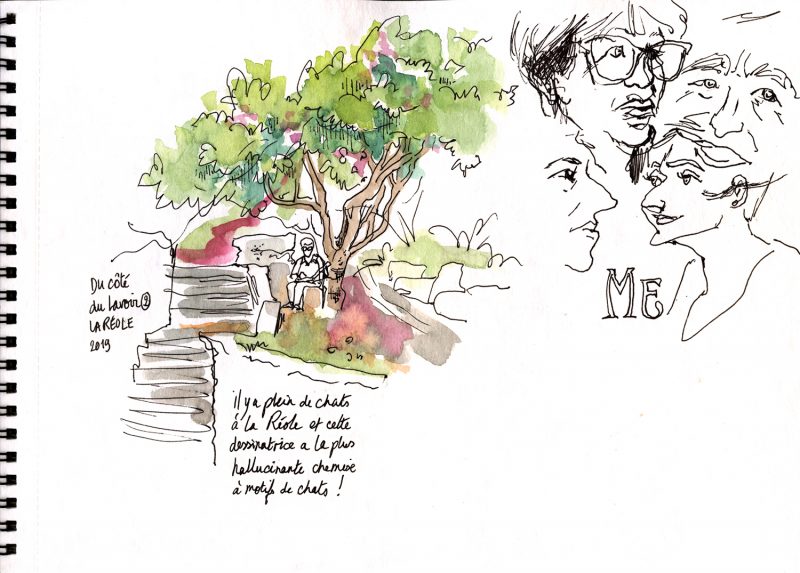 Du côté
du Lavoir ②
LA RÉOLE
2019
il y a plein de chats
à la Réole et cette
dessinatrice a la plus
hallucinante chemise
à motifs de chats !
ME